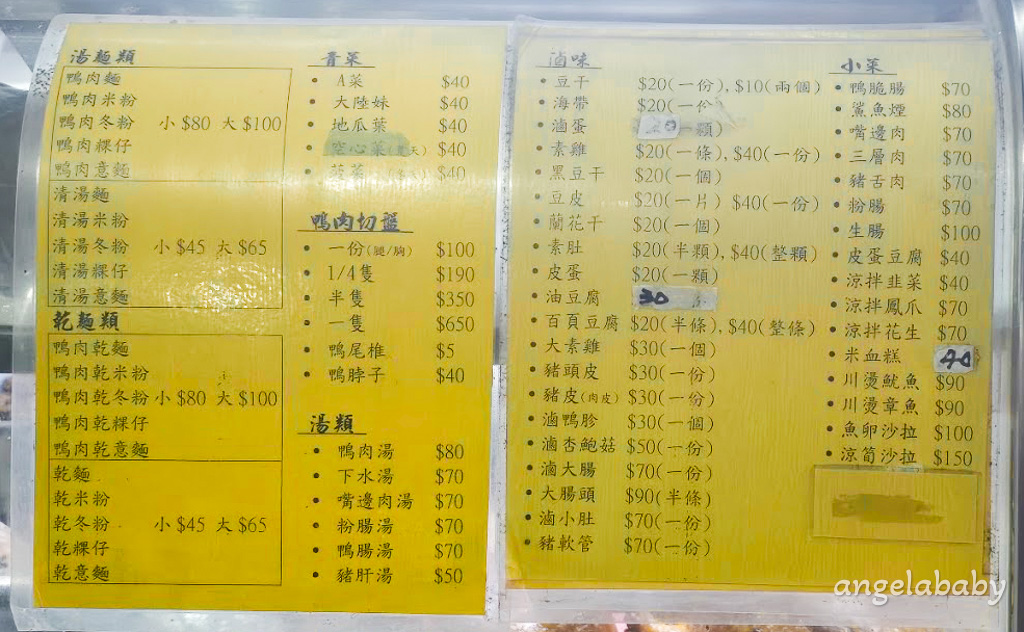 湯麵類
鴨肉麵
鴨肉米粉
鴨肉冬粉 小$80 大$100
鴨肉粿仔
鴨肉意麵
清湯麵
清湯米粉
清湯冬粉 小$45 大$65
清湯粿仔
清湯意麵
乾麵類
鴨肉乾麵
鴨肉乾米粉
鴨肉乾冬粉 小$80 大$100
鴨肉乾粿仔
鴨肉乾意麵
乾麵
乾米粉
乾冬粉 小$45 大$65
乾粿仔
乾意麵
青菜
• A菜 $40
• 大陸妹 $40
• 地瓜葉 $40
• 空心菜(夏天) $40
• 菠菜 $40
鴨肉切盤
• 一份(腿/胸) $100
• 1/4隻 $190
• 半隻 $350
• 一隻 $650
• 鴨尾椎 $5
• 鴨脖子 $40
湯類
• 鴨肉湯 $80
• 下水湯 $70
• 嘴邊肉湯 $70
• 粉腸湯 $70
• 鴨腸湯 $70
• 豬肝湯 $50
滷味
• 豆干 $20(一份),$10(兩個)
• 海帶 $20(一份)
• 滷蛋 20 一顆)
• 素雞 $20(一條),$40(一份)
• 黑豆干 $20(一個)
• 豆皮 $20(一片) $40(一份)
• 蘭花干 $20(一個)
• 素肚 $20(半顆),$40(整顆)
• 皮蛋 $20(一顆)
• 油豆腐 30
• 百頁豆腐 $20(半條),$40(整條)
• 大素雞 $30(一個)
• 豬頭皮 $30(一份)
• 豬皮(肉皮) $30(一份)
• 滷鴨胗 $30(一個)
• 滷杏鮑菇 $50(一份)
• 滷大腸 $70(一份)
• 大腸頭 $90(半條)
• 滷小肚 $70(一份)
• 豬軟管 $70(一份)
小菜
• 鴨脆腸 $70
• 鯊魚煙 $80
• 嘴邊肉 $70
• 三層肉 $70
• 豬舌肉 $70
• 粉腸 $70
• 生腸 $100
• 皮蛋豆腐 $40
• 涼拌韭菜 $40
• 涼拌鳳爪 $70
• 涼拌花生 $70
• 米血糕 40
• 川燙魷魚 $90
• 川燙章魚 $90
• 魚卵沙拉 $100
• 涼筍沙拉 $150
angelababy